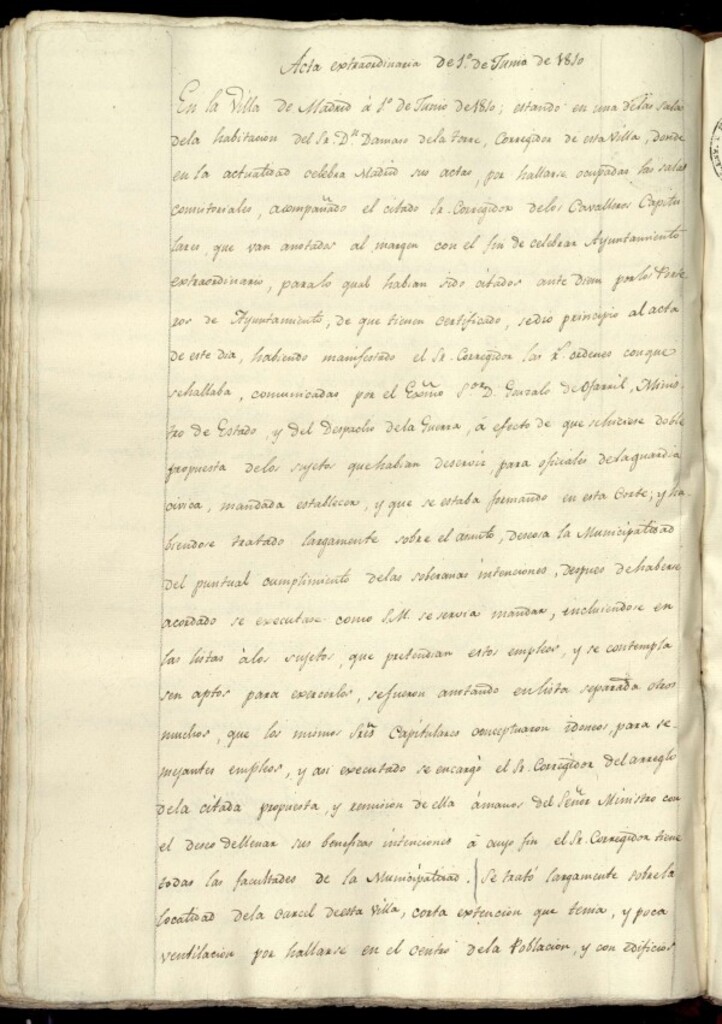 Acta extraordinaria de 1º de Junio de 1810
En la Villa de Madrid á 1º de Junio de 1810; estando en una delas salas
dela habitacion del Sr. Dn. Damaso dela Torre, Corregidor de esta Villa, donde
en la actualidad celebra Madrid sus actas, por hallarse ocupadas las salas
consistoriales, acompañado el citado Sr. Corregidor delos Cavalleros Capitu
lares, que van anotados al margen con el fin de celebrar Ayuntamiento
extraordinario, paralo qual habian sido citados ante Diem por los Porte
ros de Ayuntamiento, de que tienen certificado, sedio principio al acta
de este dia, habiendo manifestado el Sr. Corregidor las Rs. ordenes conque
sehallaba, comunicadas por el Exmo. Sor. D. Gonzalo de Ofarril, Minis-
tro de Estado, y del Despacho dela Guerra, á efecto de que sehiciese doble
propuesta delos sujetos quehabian deservir para oficiales delaguardia
civica, mandada establecer, y que se estaba formando en esta Corte; y ha-
biendose tratado largamente sobre el asunto, deseosa la Municipalidad
del puntual cumplimiento delas soberanas intenciones, despues dehaberse
acordado se executase como S.M. se servia mandar, incluiendose en
las listas álos sujetos, que pretendian estos empleos, y se contempla
sen aptos para exercerlos, sefueron anotando enlista separada otros
muchos, que los mismos Sres. Capitulares conceptuaron idoneos, para se-
mejantes empleos, y asi executado se encargó el Sr. Corregidor del arreglo
dela citada propuesta, y remision de ella ámanos del Señor Ministro con
el deseo dellenar sus beneficas intenciones á cuyo fin el Sr. Corregidor tiene
todas las facultades de la Municipalidad. Se trató largamente sobrela
localidad dela carcel deesta Villa, corta extencion que tenia, y poca
ventilacion por hallarse en el centro dela Poblacion, y con edificios